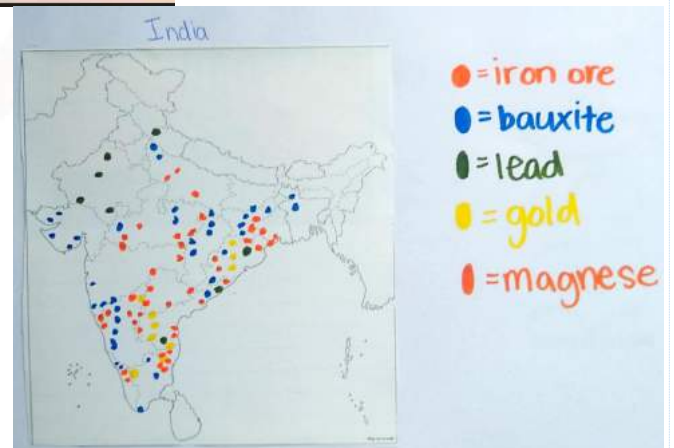 India
= iron ore
= bauxite
= lead
= gold
= magnese